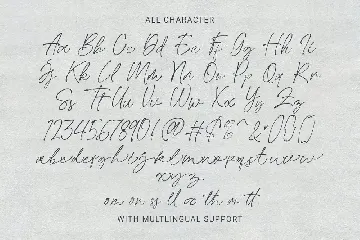 ALL CHARACTER
Aa Bb Cc Dd Ee Ff Gg Hh Ii
Jj Kk Ll Mm Nn Oo Pp Qq Rr
Ss Tt Uu Vv Ww Xx Yy Zz
1234567890!@#$
abcdefghijklmnopqrstuvw
xyz
om on ss ll
WITH MULTLINGUAL SUPPORT